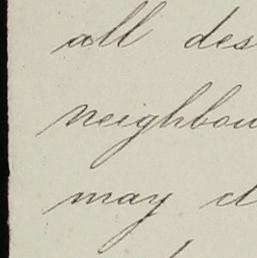 all des
neighbou
may d